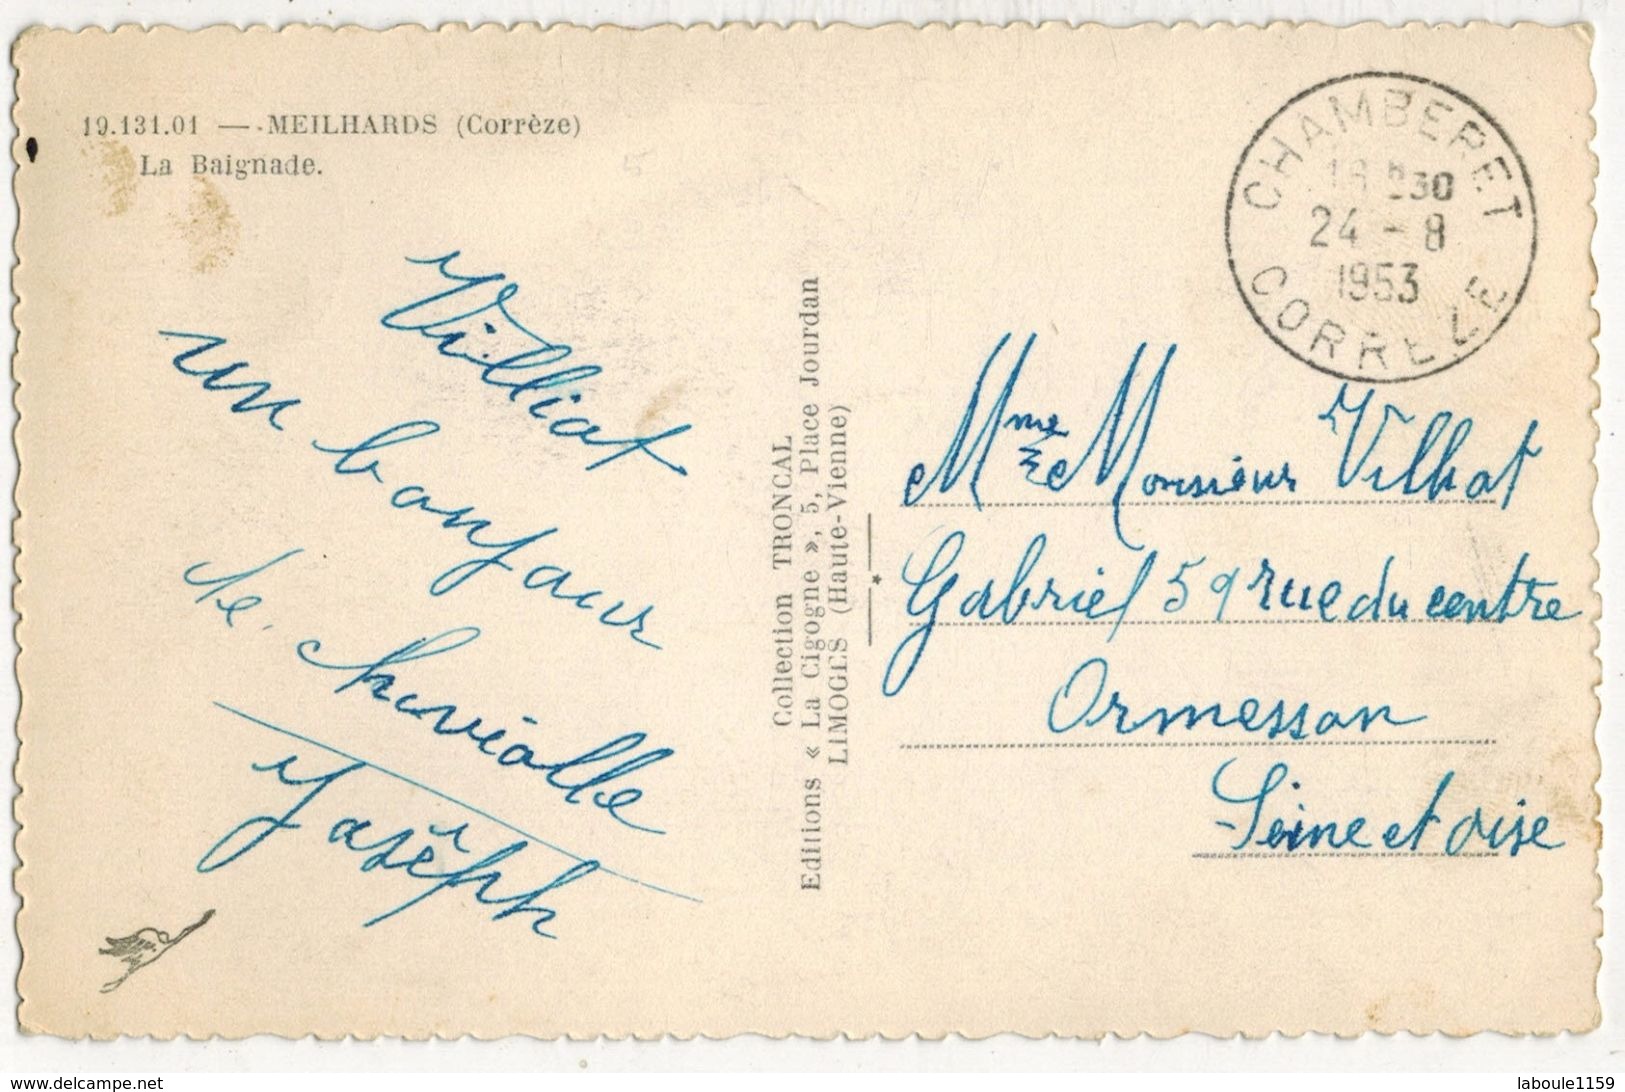 19.131.01 — MEILHARDS (Corrèze)
La Baignade.
Villiat
un bonjour
de
chaviolle
Joséph
Collection TRONCAL
Editions « La Cigogne », 5, Place Jourdan
LIMOGES (Haute-Vienne)
CHAMBERET
18 H30
24 - 8
1953
CORREZE
Mme et Monsieur Vilhat
Gabriel 59 rue du centre
Ormesson
Seine et oise
delcampe.net
laboule1159